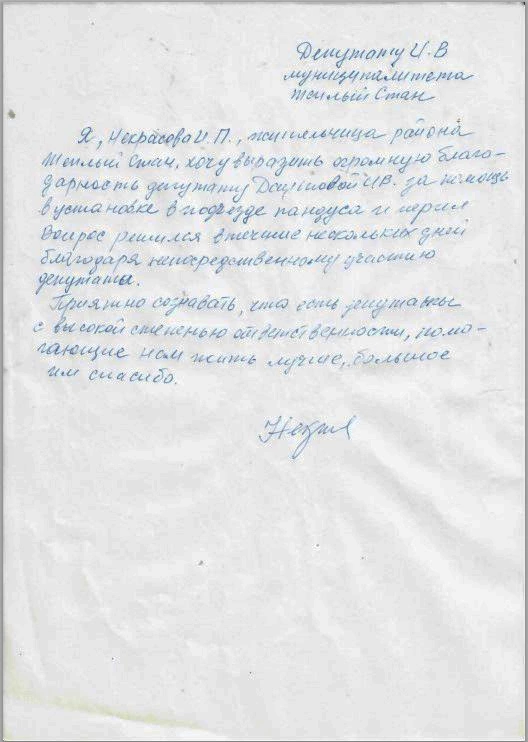 Депутату И. В
муниципалитета
Тёплый Стан
Я, Некрасова И. П., жительница района
Тёплый Стан, хочу выразить огромную благо-
дарность депутату И В. за помощь
в установке в подъезде пандуса и перил
Вопрос решился в течение нескольких дней
благодаря непосредственному участию
депутата.
Приятно сознавать, что есть депутаты
с высокой степенью ответственности, помо-
гающие нам жить лучше, большое
им спасибо.